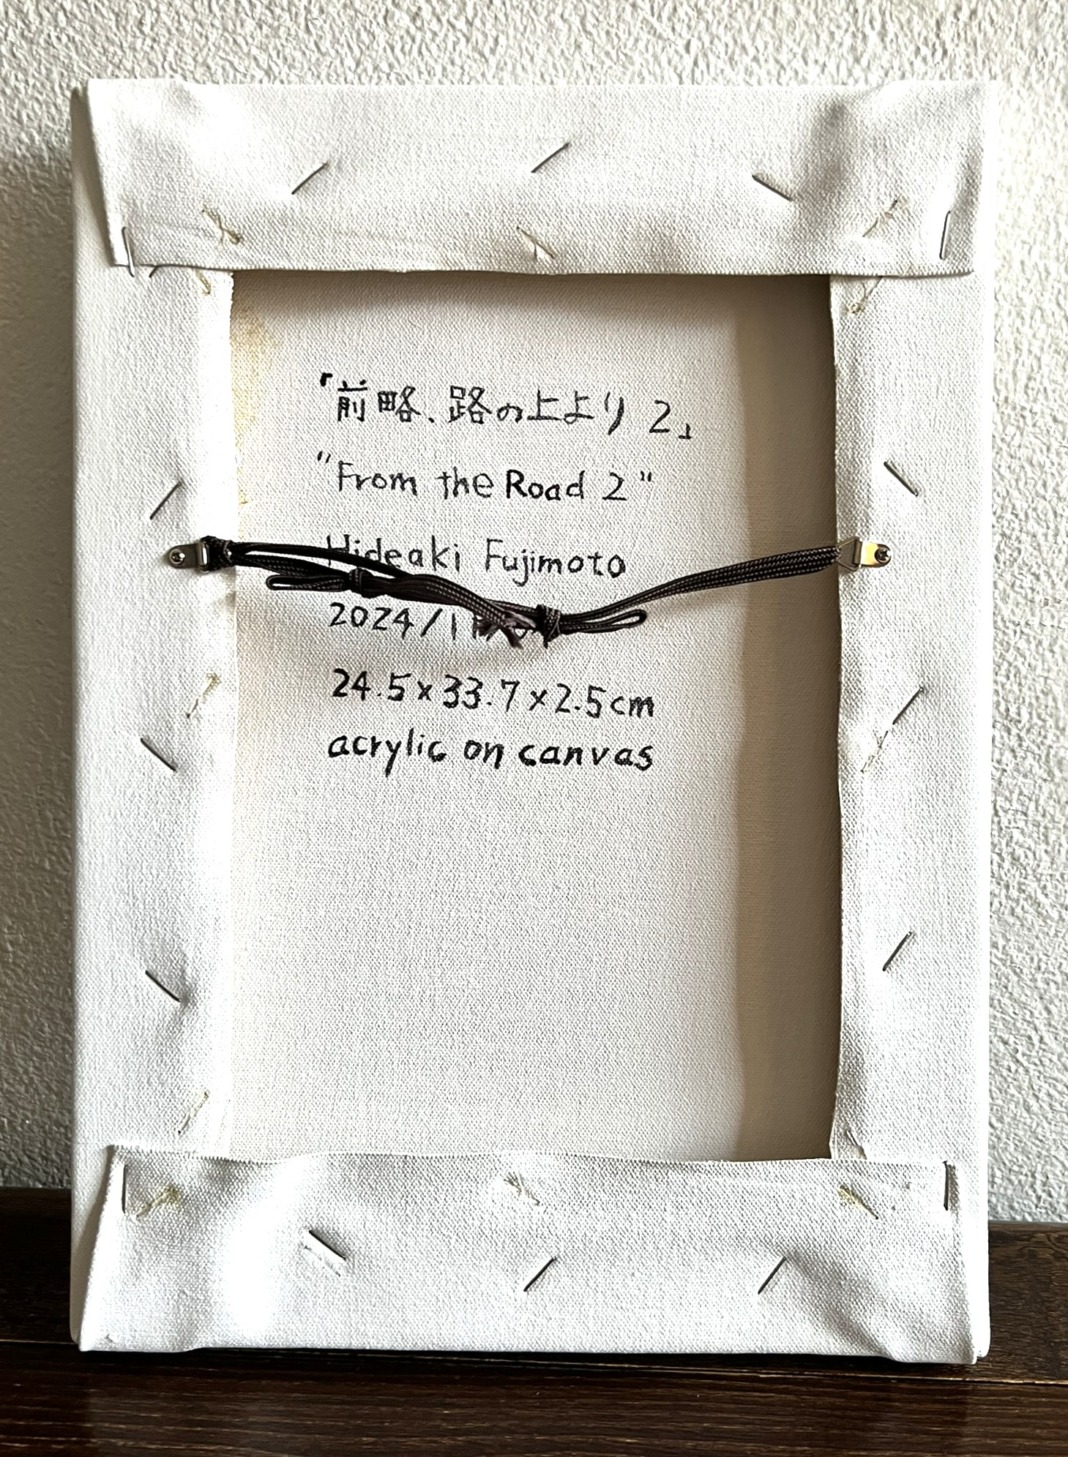 『前略、路の上より 2』
"From the Road 2"
Hideaki Fujimoto
24.5×33.7×2.5cm
acrylic on canvas